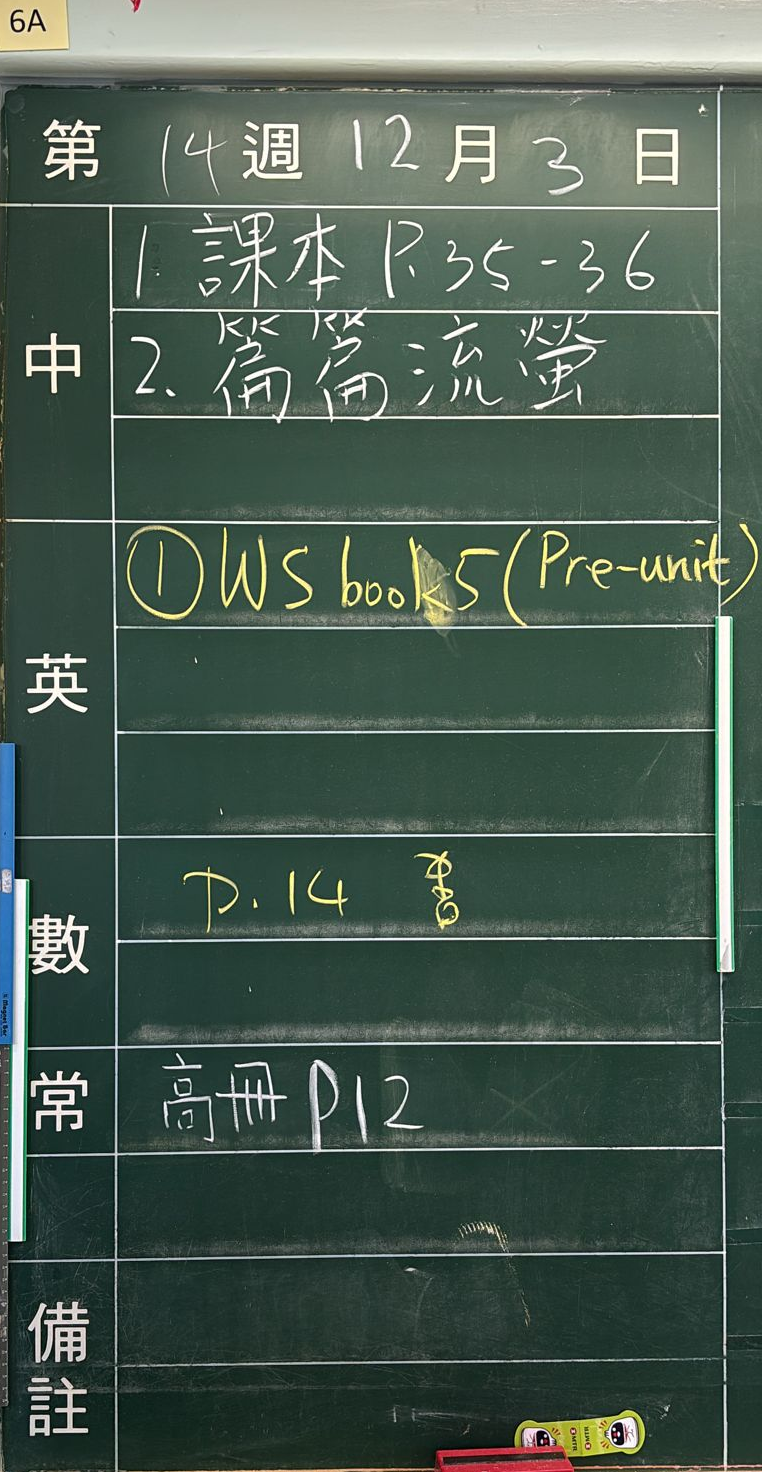 6A
第 14 週 12 月 3 日
中
1. 課本 P.35-36
2. 篇篇流螢
英
① WS book5 (Pre-unit)
數
P.14 書
常
高冊 P12
備註